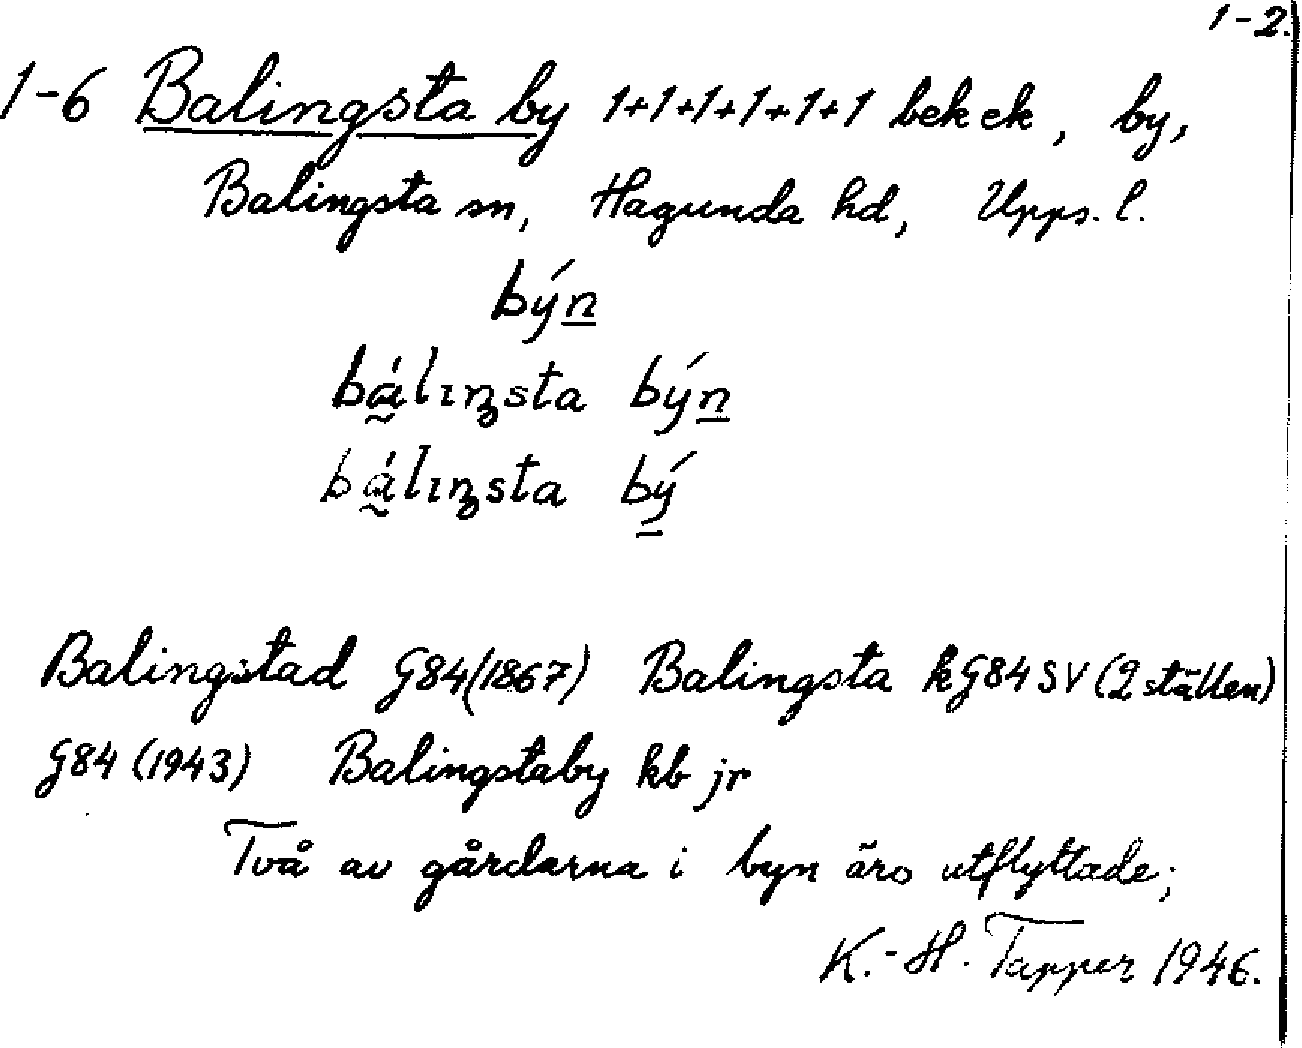 1-2.
1-6 Balingsta by 1+1+1+1+1+1 bek ek, by,
Balingsta sn, Hagunda hd, Upps. l.
býn
bálıŋsta býn
bálıŋsta bý
Balingstad G84(1867) Balingsta kG84SV (2 ställen)
G84 (1943) Balingstaby kb jr
Två av gårdarna i byn äro utflyttade;
K.-H. Tapper 1946.